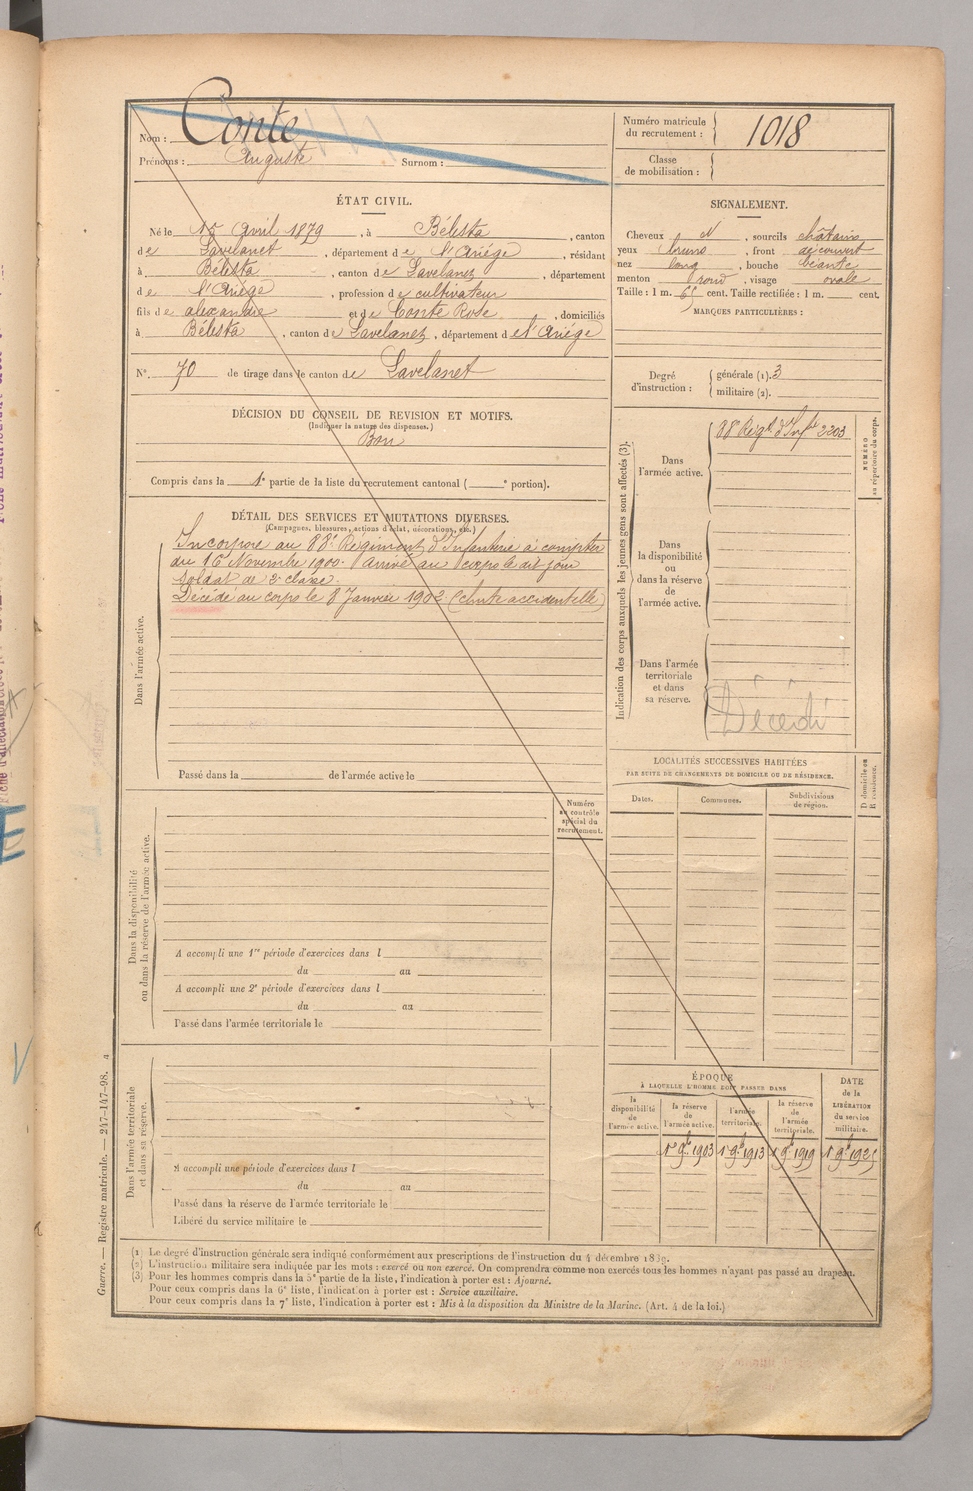 Nom : Conte
Prénoms : Auguste Surnom :
Numéro matricule du recrutement : 1018
Classe de mobilisation :
ÉTAT CIVIL.
Né le 15 Avril 1879, à Bélesta, canton
de Lavelanet, département de l'Ariége, résidant
à Bélesta, canton de Lavelanet, département
de l'Ariége, profession de cultivateur
fils de alexandre et de Conte Rose, domiciliés
à Bélesta, canton de Lavelanet, département de l'Ariége
N° 70 de tirage dans le canton de Lavelanet
SIGNALEMENT.
Cheveux d, sourcils châtains
yeux bruns, front découvert
nez long, bouche béante
menton rond, visage ovale
Taille : 1 m. 65 cent. Taille rectifiée : 1 m. cent.
MARQUES PARTICULIÈRES :
Degré d'instruction : générale (1). 3
militaire (2).
DÉCISION DU CONSEIL DE REVISION ET MOTIFS.
(Indiquer la nature des dispenses.)
Bon
Compris dans la 1e partie de la liste du recrutement cantonal ( e portion).
DÉTAIL DES SERVICES ET MUTATIONS DIVERSES.
(Campagnes, blessures, actions d'éclat, décorations, etc.)
Incorporé au 88e Régiment d'Infanterie à compter
du 16 Novembre 1900. Arrivé au corps le dit jour
soldat de 2e classe.
Décédé au corps le 8 Janvier 1902 (chute accidentelle)
Dans l'armée active.
Passé dans la de l'armée active le
Indication des corps auxquels les jeunes gens sont affectés (3).
Dans l'armée active.
88e Régt d'Infie 2203
NUMÉRO au répertoire du corps.
Dans la disponibilité ou dans la réserve de l'armée active.
Dans l'armée territoriale et dans sa réserve.
Décédé
LOCALITÉS SUCCESSIVES HABITÉES
PAR SUITE DE CHANGEMENTS DE DOMICILE OU DE RÉSIDENCE.
Dates. Communes. Subdivisions de région.
D domicile ou R résidence.
Numéro au contrôle spécial du recrutement.
Dans la disponibilité ou dans la réserve de l'armée active.
A accompli une 1re période d'exercices dans l
du au
A accompli une 2e période d'exercices dans l
du au
Passé dans l'armée territoriale le
Dans l'armée territoriale et dans sa réserve.
A accompli une période d'exercices dans l
du au
Passé dans la réserve de l'armée territoriale le
Libéré du service militaire le
ÉPOQUE
À LAQUELLE L'HOMME DOIT PASSER DANS
la disponibilité de l'armée active.
la réserve de l'armée active.
l'armée territoriale.
la réserve de l'armée territoriale.
DATE de la LIBÉRATION du service militaire.
1er 9bre 1903 1er 9bre 1913 1er 9bre 1919 1er 9bre 1925
(1) Le degré d'instruction générale sera indiqué conformément aux prescriptions de l'instruction du 4 décembre 1889.
(2) L'instruction militaire sera indiquée par les mots : exercé ou non exercé. On comprendra comme non exercés tous les hommes n'ayant pas passé au drapeau.
(3) Pour les hommes compris dans la 5e partie de la liste, l'indication à porter est : Ajourné.
Pour ceux compris dans la 6e liste, l'indication à porter est : Service auxiliaire.
Pour ceux compris dans la 7e liste, l'indication à porter est : Mis à la disposition du Ministre de la Marine. (Art. 4 de la loi.)
Guerre. — Registre matricule. — 247-147-98.